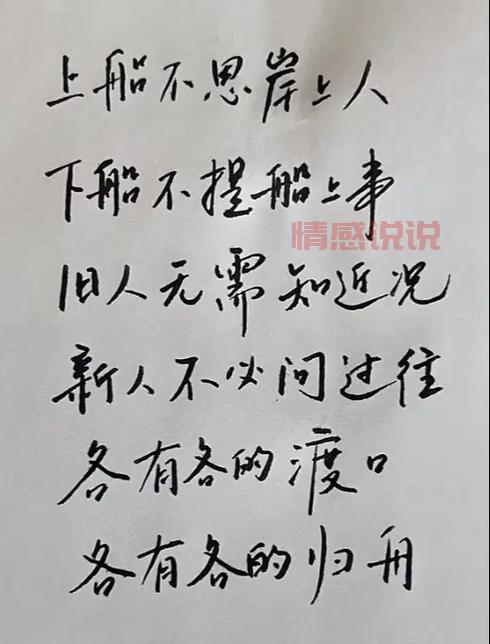 上船不思岸上人
下船不提船上事
情感说说
旧人无需知近况
新人不必问过往
各有各的渡口
各有各的归舟